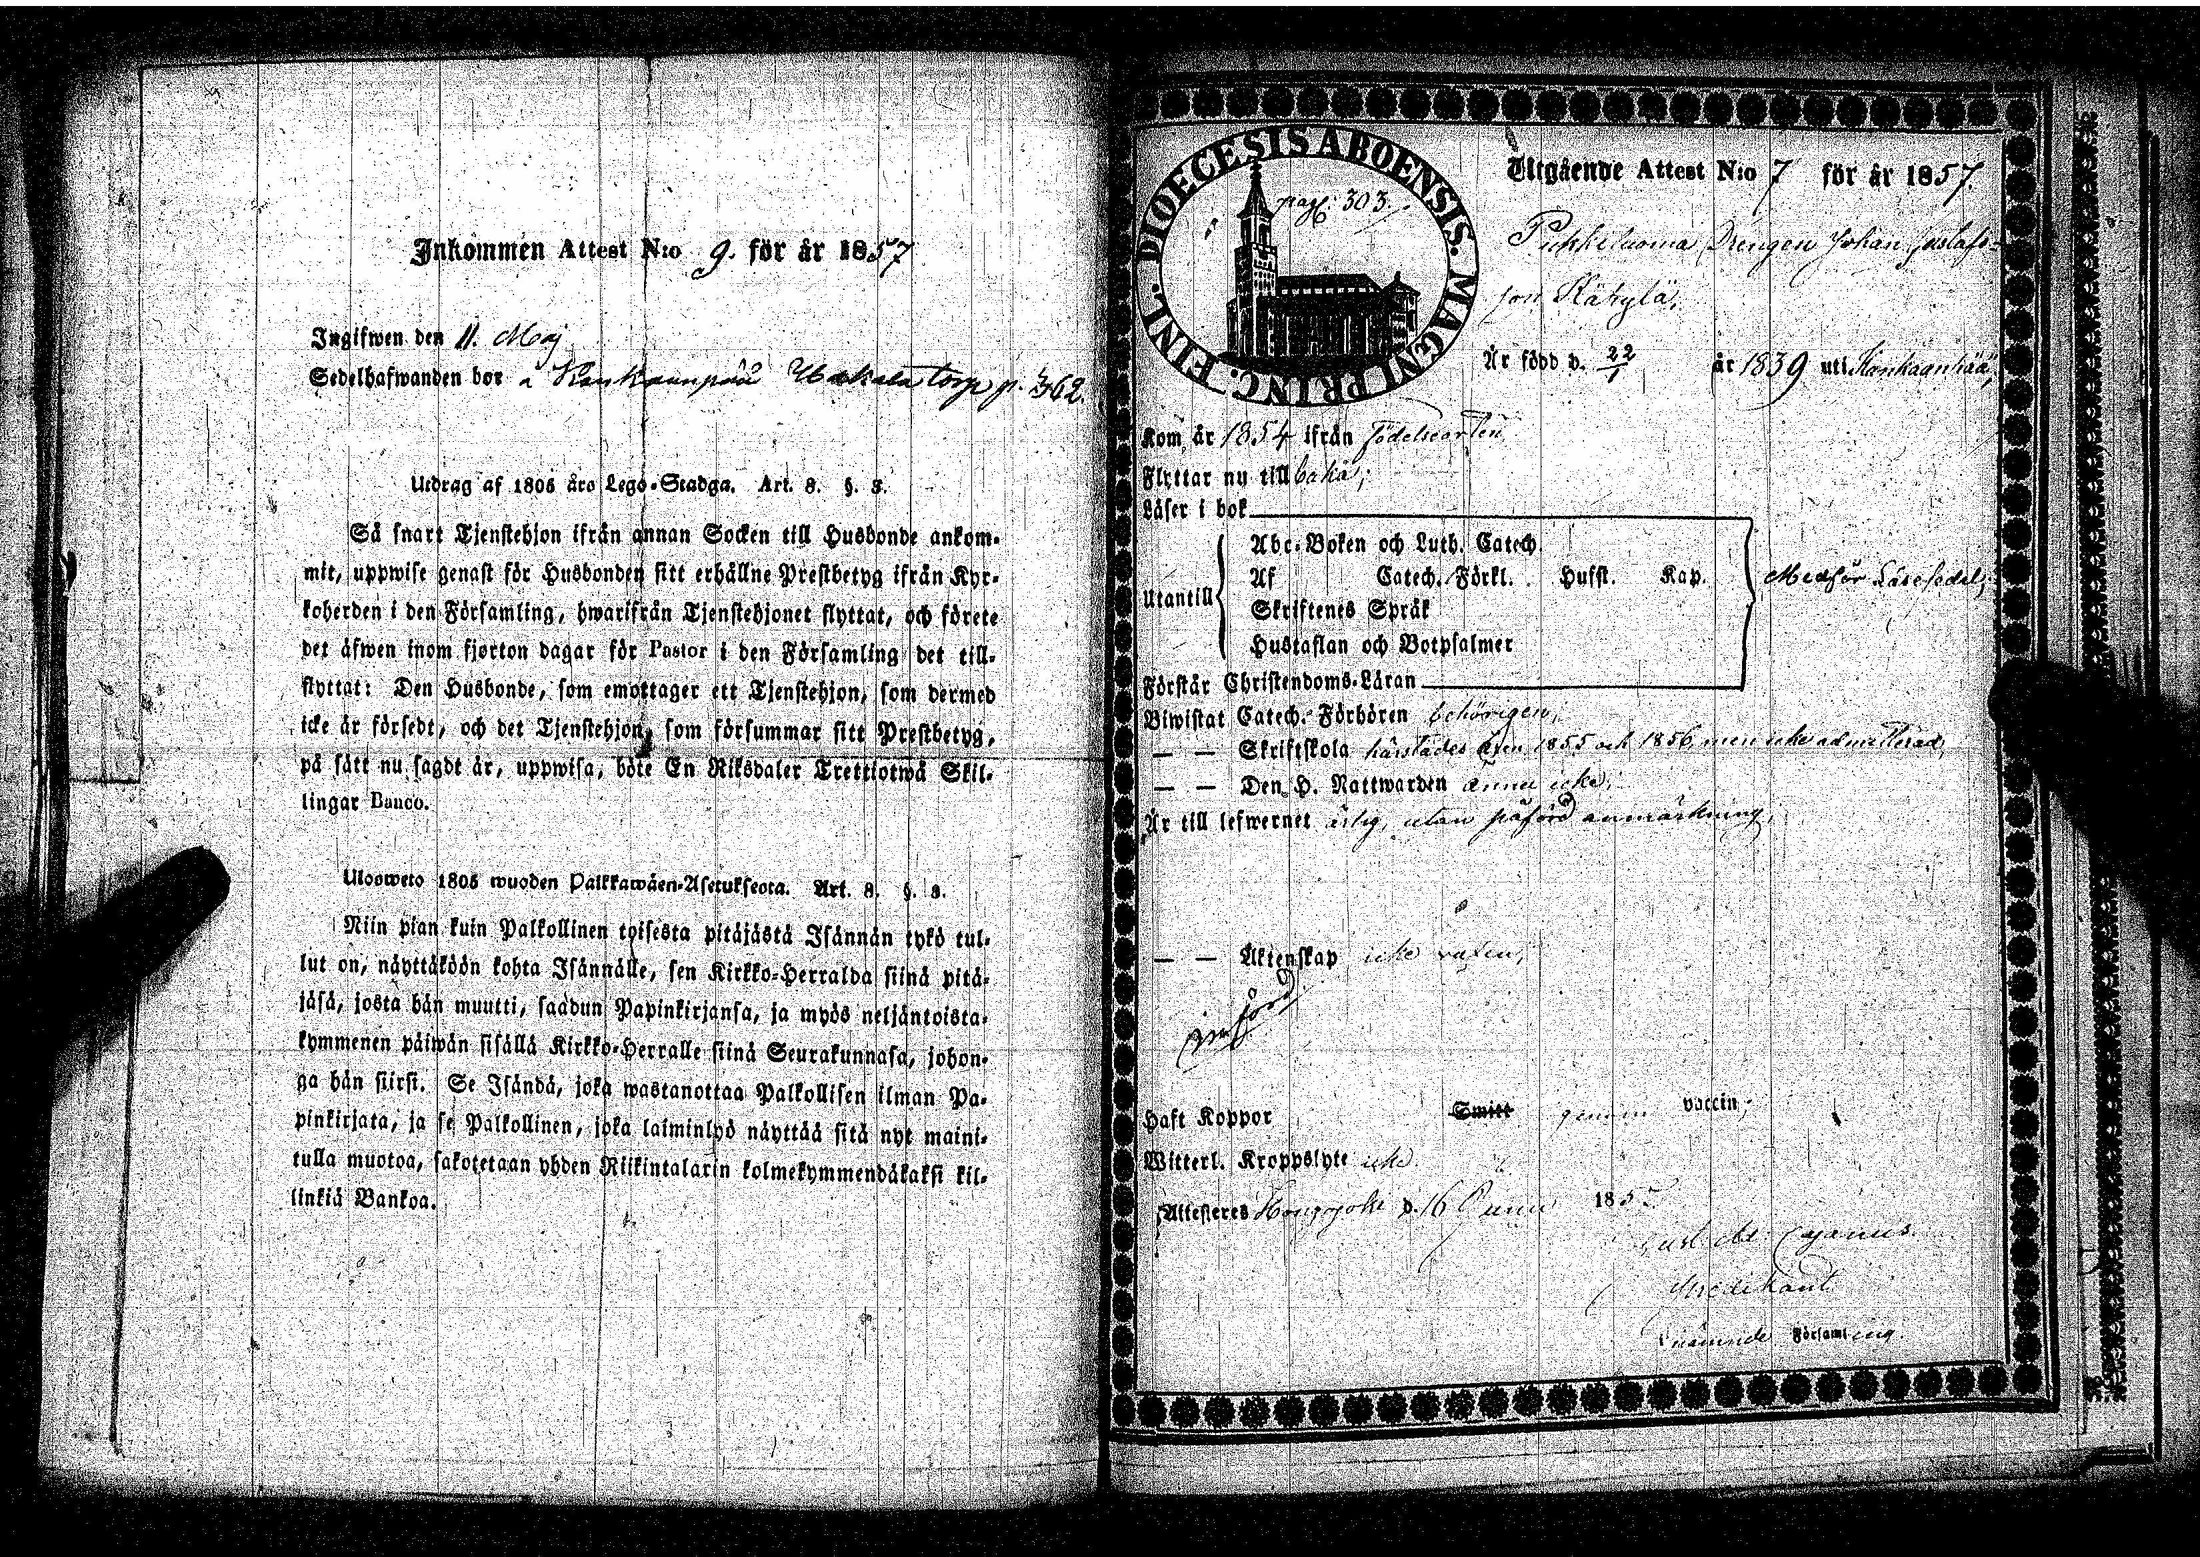 Inkommen Attest N:o 9. för år 1857
Ingifwen den 11. Maj
Sedelhafwanden bor å Kankaanpää torp p. 362.
Utdrag af 1805 års Lego-Stadga. Art. 8. §. 3.
Så snart Tjenstehjon ifrån annan Socken till Husbonde ankom-
mit, uppwise genast för Husbonden sitt erhållne Prestbetyg ifrån Kyr-
koherden i den Församling, hwarifrån Tjenstehjonet flyttat, och förete
det äfwen inom fjorton dagar för Pastor i den Församling det till-
flyttat: Den Husbonde, som emottager ett Tjenstehjon, som dermed
icke är försedt, och det Tjenstehjon, som försummar sitt Prestbetyg,
på sätt nu sagdt är, uppwisa, böte En Riksdaler Trettiotwå Skil-
lingar Banco.
Ulosweto 1805 wuoden Palkkawäen-Asetuksesta. Art. 8. §. 3.
Niin pian kuin Palkollinen toisesta pitäjästä Isännän tykö tul-
lut on, näyttäköön kohta Isännälle, sen Kirkko-Herralda siinä pitä-
jäsä, josta hän muutti, saadun Papinkirjansa, ja myös neljäntoista-
kymmenen päiwän sisällä Kirkko-Herralle siinä Seurakunnasa, johon-
ga hän siirsi. Se Isändä, joka wastanottaa Palkollisen ilman Pa-
pinkirjata, ja se Palkollinen, joka laiminlyö näyttää sitä nyt maini-
tulla muotoa, sakotetaan yhden Riikintalarin kolmekymmendäkaksi kil-
linkiä Bankoa.
DIOECESIS ABOENSIS. MAGNI PRINC. FINL.
pag: 303.
Utgående Attest N:o 7 för år 1857.
Drengen Johan Gustafs-
son
Är född d. 22/1 år 1839 uti Kankaanpää,
Kom år 1854 ifrån födelseorten
Flyttar nu till baka;
Läser i bok
Utantill
Abc-Boken och Luth. Catech.
Af Catech. Förkl. Hufst. Kap.
Skriftenes Språk
Hustaflan och Botpsalmer
Medför Läsesedel;
Förstår Christendoms-Läran
Biwistat Catech. Förhören behörigen;
— — Skriftskola härstädes åren 1855 och 1856 men icke admitterad,
— — Den H. Nattwarden ännu icke;
Är till lefwernet ärlig, utan påförd anmärkning,
— — Äktenskap icke
införd
Haft Koppor Smitt genom vaccin;
Witterl. Kroppslyte icke
Attesteres Hongojoki d. 16 1857
Cygnæus.
Predikant
nämnde Församling.